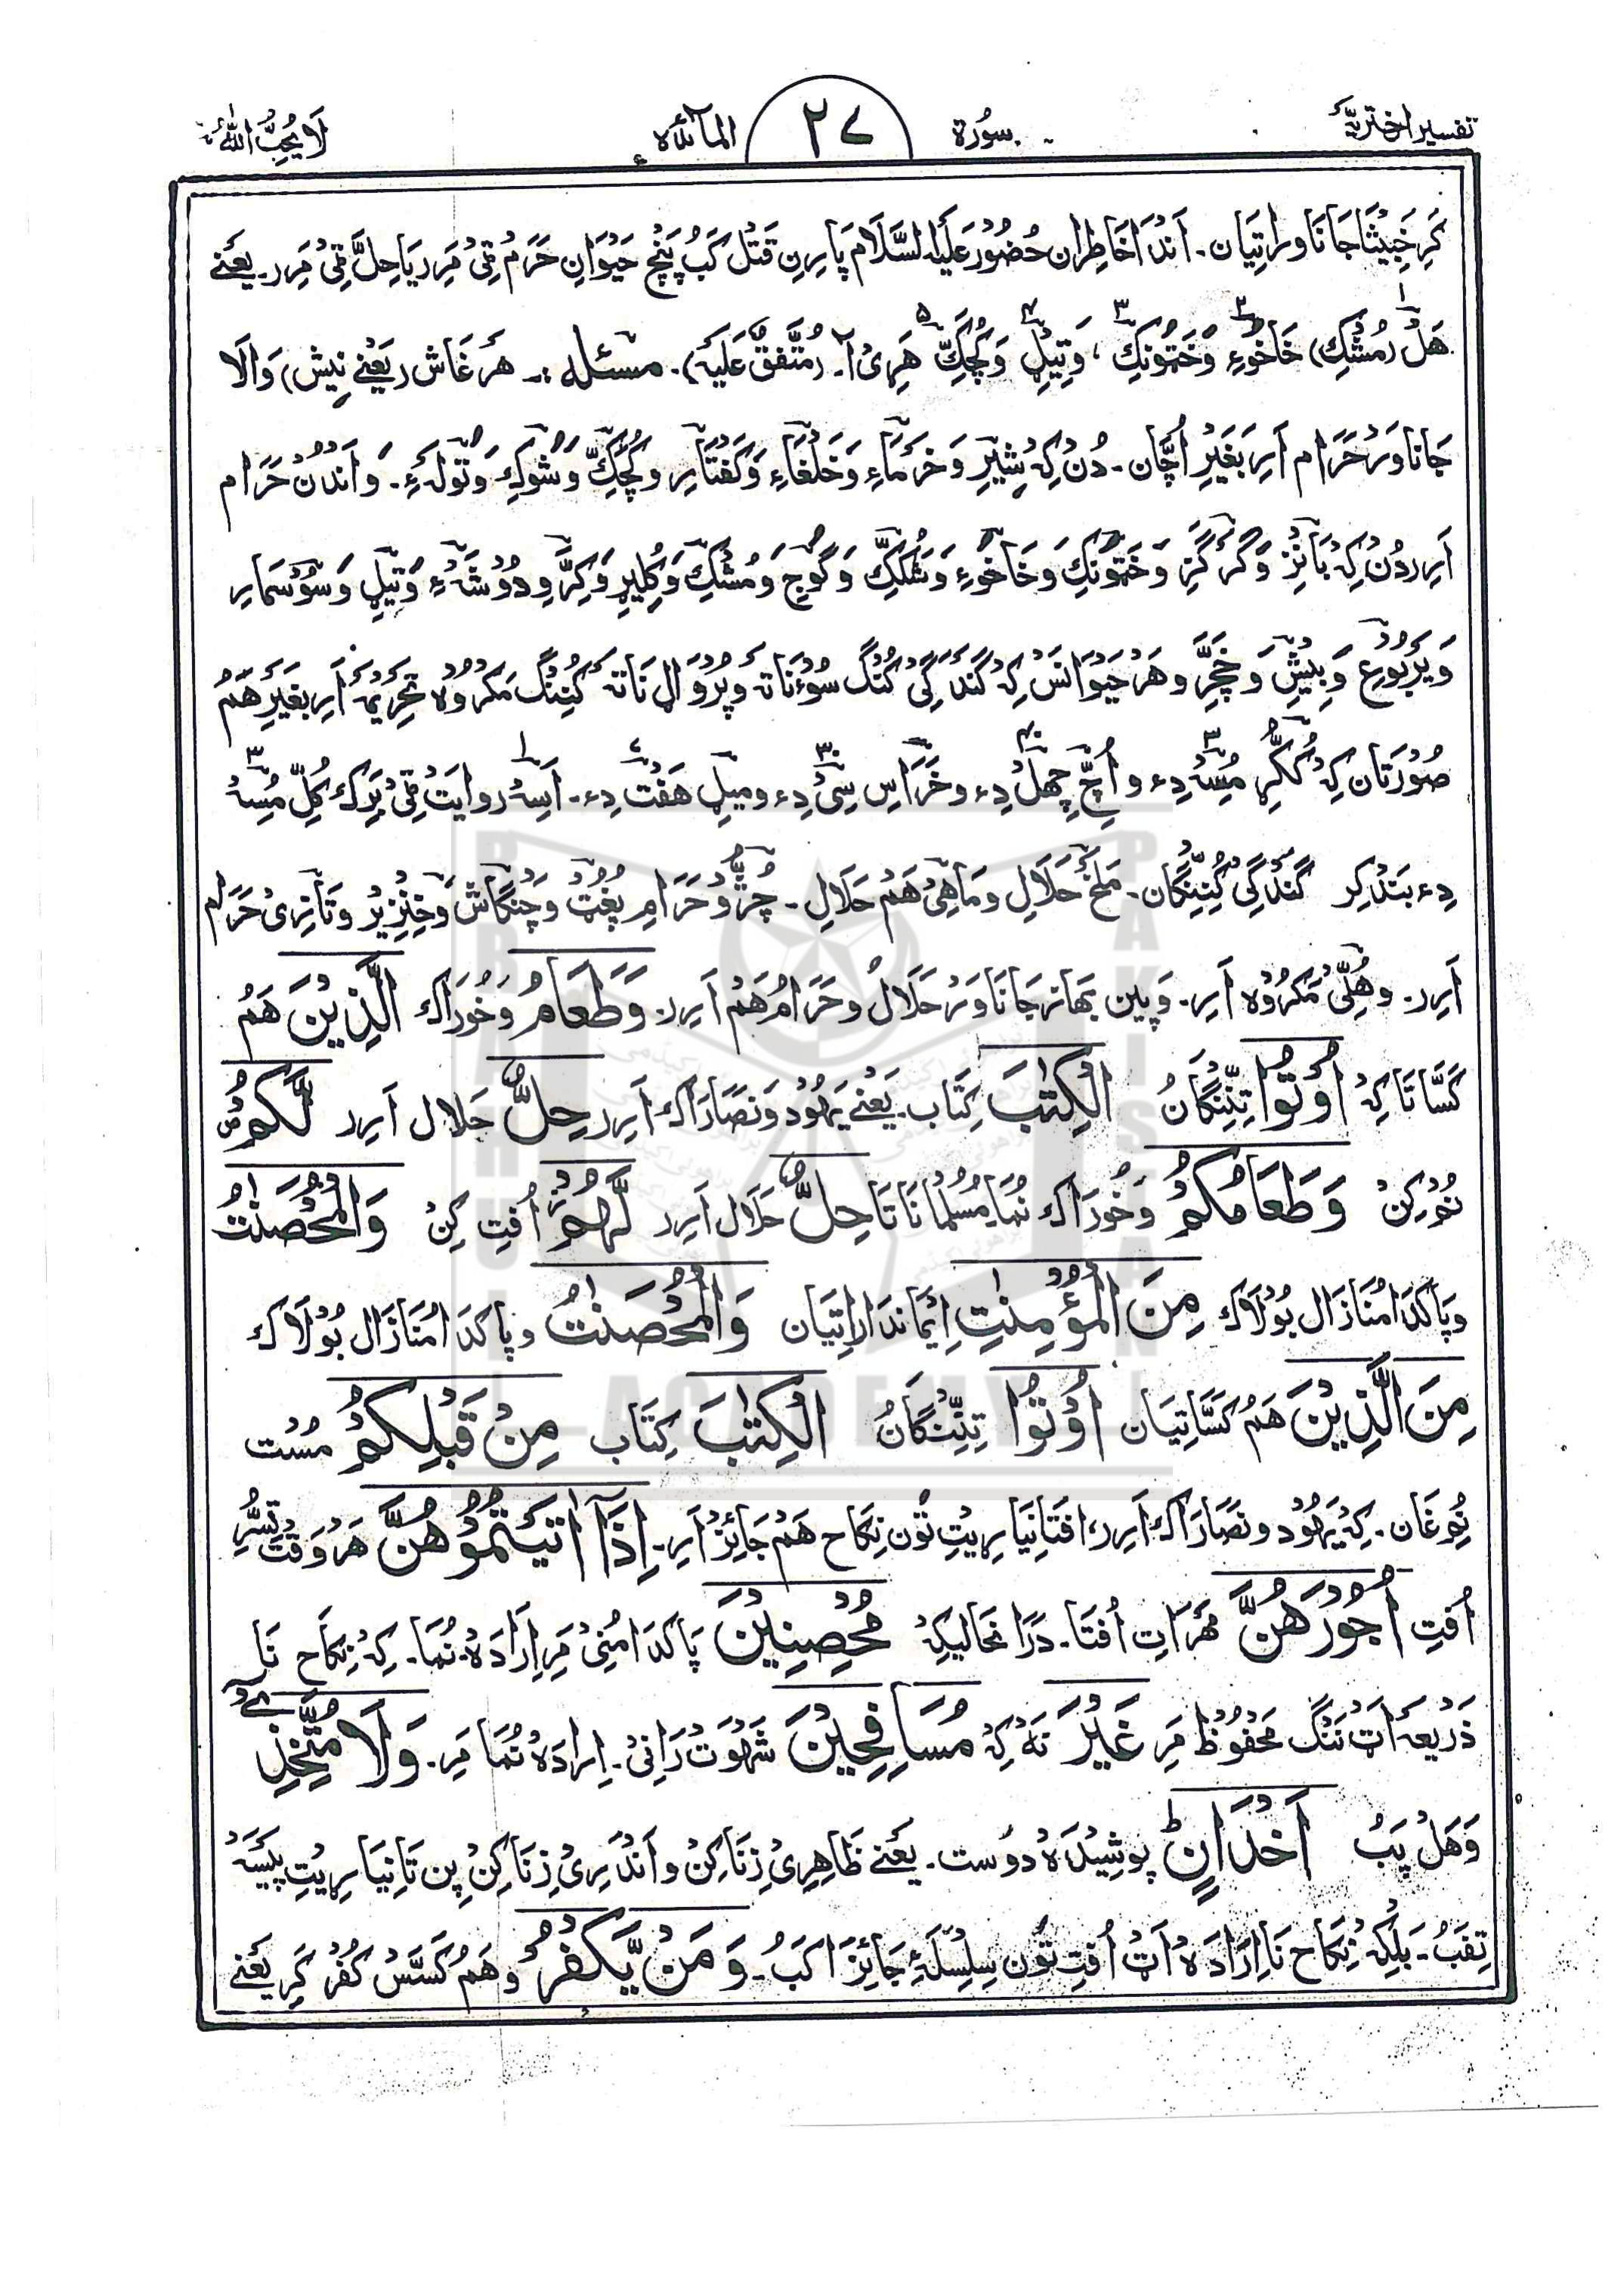 تفسیر اختریہ
سُورة
٢٧
المآئدة
لَا یُحِبُّ اللّٰهُ
کَرِ خَبِیْثَا جَانَاوَراتِیَان۔ اَنْدَا خَاطِران حُضُوْر عَلَیْهِ السَّلَام پَارِن قَتْل کَبْ پَنْچ حَیْوَان حَرَمْ ٹِیْ مَرِر یَا حِلّ ٹِیْ مَرِر۔ یَعْنے
هَلْ (مُشْک) خَاخُوءِ وَخَتُوْنِک، وَتِیْل وَکُچَکِّ هَرِیْ آ۔ (مُتَّفَقٌ عَلَیْهِ)۔ مسئلہ:۔ هر غَاش (یَعْنے نِیش) وَالَا
جَانَاوَر حَرَام اَرِ بَغَیْرِ اُچَّان۔ دُنْ کِهْ شِیْرِ وَخَرْمَاءِ وَخَلْغَاءِ وَکَفْتَارِ وَکُچَکِّ وَشَوْکِ وَتَوْلَهءِ۔ وَ اَنْدُنْ حَرَام
اَرِر دُنْ کِهْ بَانِزْ وَگَرْگَزِ وَخَتُوْنِکَ وَخَاخُوءِ وَشُلَکِّ وَگُوْجِ وَمُشْکِ وَکِلِیْرِ وَکِرِّ وِدُوْشَهْءِ وَتِیْلِ وَسُوْسَمَارِ
وَیَرْبُوْعِ وَبِیْشِ وَخَچَّرِ وَهَرْ حَیْوَانَسْ کِهْ گَنْدَگِیْ کُنْگ سُوْءنَاتَهْ وَپُرْوَال نَاتَهْ کُنِنْگ مَکْرُوْهِ تَحْرِیْمَهْ اَرِ بغَیْرِ هَمْ
صُوْرَتَان کِهْ کُکُّڑِ مُسِهْ دِء وَ اُچِّ چِهَلْ دِء وَ خَرَاسِ سِیْ دِء وَ مِیْلِ هَفْت دِء۔ اَسِهْ رِوَایَتْ ٹِیْ بَرَک کُلِّ مُسِهْ
دِء بَنْد کِر گَنْدَگِیْ کُنِنْگَان۔ مَلَخْ حَلَالِ وَمَاهِیْ هَمْ حَلَالِ۔ چُرُّ وَحَرَامِ پُغُٹ وَچَنْگَاش وَخِنْزِیْر وَتَازِیْ حَرَام
اَرِر۔ وَهُلِّیْ مَکْرُوْه اَرِ۔ وَپِین بھَاز جَانَاوَر حَلَالْ وَحَرَامْ هَمْ اَرِر۔ وَطَعَامُ وَخُوْرَاک الَّذِیْنَ هَمْ
کَسَّاتَا کِهْ اُوْتُوا تِنِنْگَانُ الْکِتٰبَ کِتَاب۔ یَعْنے یَهُوْد وَنَصَارَاک اَرِر حِلٌّ حَلَال اَرِر لَّکُمْ
نُمْ کِنْ وَطَعَامُکُمْ وَخُوْرَاک نُمَا مُسْلمَانَاتَا حِلٌّ حَلَال اَرِر لَّهُمْ اُفْتِ کِنْ وَالْمُحْصَنٰتُ
وَپَاکدَامُنَازَال بُوْلَاک مِنَ الْمُؤْمِنٰتِ اِیْمَاندَاراتِیَان وَالْمُحْصَنٰتُ وَپاکدَامُنَازَال بُوْلَاک
مِنَ الَّذِیْنَ هَمْ کَسَّاتِیَان اُوْتُوا تِنِنْگَانُ الْکِتٰبَ کِتَاب مِنْ قَبْلِکُمْ مُسْت
نُمْغَان۔ کِهْ یَهُوْد وَنَصَارَاک اَرِر، اَفْتَا نِیَارِیْتِ تُوْن نِکَاح هَمْ جَائِزْ اَرِ۔ اِذَآ اٰتَیْتُمُوْهُنَّ هَرْوَقْتْ تِسُرِ
اُفْتِ اُجُوْرَهُنَّ مَهْرَاتِ اُفْتَا۔ دَرَانحَالِیْکِهْ مُحْصِنِیْنَ پَاکدَامُنِیْ مَرِ اِرَادَهْ نُمَا۔ کِهْ نِکَاح نَا
ذَرِیْعَهْ اَٹ نَنْگ مَحْفُوْظ مَرِ غَیْرَ نَهْ کِهْ مُسَافِحِیْنَ شَهْوَتْ رَانِیْ۔ اِرَادَهْ نُمَا مَرِ۔ وَلَا مُتَّخِذِیْ
وَهَلْ پَبْ اَخْدَانٍ پوشِیْدَهْ دوست۔ یَعْنے ظَاهِرِیْ زِنَا کِنْ وَ اَنْدَرِیْ زِنَا کِنْ پِن تَا نِیَارِیْتِ پَیْسَهْ
تِفَبْ۔ بَلْکِهْ نِکَاح نَا اِرَادَهْ اَٹ اُفْتِ تُوْن سِلْسِلَهْءِ جَائِزْ کَبْ۔ وَمَنْ یَّکْفُرْ وَهَمْ کَسَّسْ کُفْر کَرِ یَعْنے